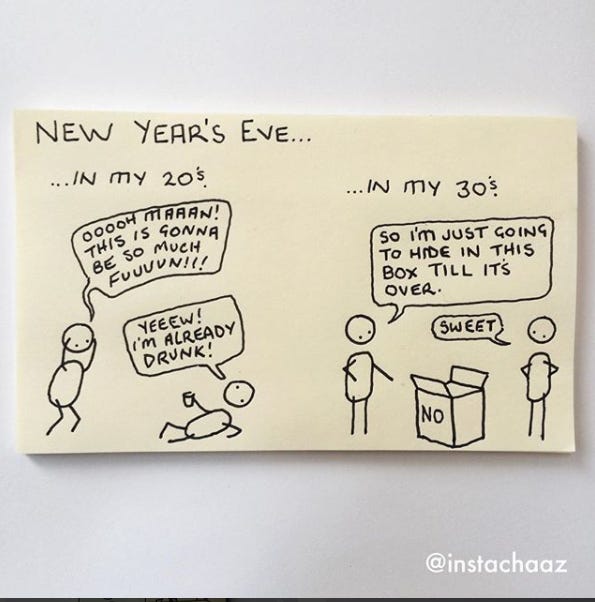 NEW YEAR'S EVE...
...IN MY 20'S.
OOOOH MAAAN!
THIS IS GONNA
BE SO MUCH
FUUUUN!!!
YEEEW!
I'M ALREADY
DRUNK!
...IN MY 30'S.
SO I'M JUST GOING
TO HIDE IN THIS
BOX TILL IT'S
OVER.
SWEET
NO
@instachaaz